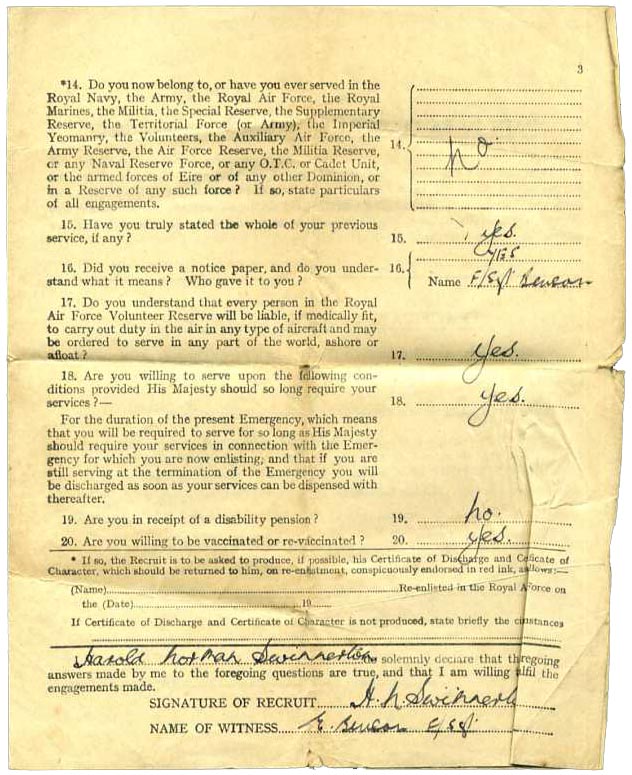 3
*14. Do you now belong to, or have you ever served in the
Royal Navy, the Army, the Royal Air Force, the Royal
Marines, the Militia, the Special Reserve, the Supplementary
Reserve, the Territorial Force (or Army), the Imperial
Yeomanry, the Volunteers, the Auxiliary Air Force, the
Army Reserve, the Air Force Reserve, the Militia Reserve,
or any Naval Reserve Force, or any O.T.C. or Cadet Unit,
or the armed forces of Eire or of any other Dominion, or
in a Reserve of any such force? If so, state particulars
of all engagements.
14. no.
15. Have you truly stated the whole of your previous
service, if any?
15. yes.
16. Did you receive a notice paper, and do you under-
stand what it means? Who gave it to you?
16. YES
Name F/Sgt Benson
17. Do you understand that every person in the Royal
Air Force Volunteer Reserve will be liable, if medically fit,
to carry out duty in the air in any type of aircraft and may
be ordered to serve in any part of the world, ashore or
afloat?
17. yes.
18. Are you willing to serve upon the following con-
ditions provided His Majesty should so long require your
services?—
18. yes.
For the duration of the present Emergency, which means
that you will be required to serve for so long as His Majesty
should require your services in connection with the Emer-
gency for which you are now enlisting; and that if you are
still serving at the termination of the Emergency you will
be discharged as soon as your services can be dispensed with
thereafter.
19. Are you in receipt of a disability pension?
19. no.
20. Are you willing to be vaccinated or re-vaccinated?
20. yes.
* If so, the Recruit is to be asked to produce, if possible, his Certificate of Discharge and Ceficate of
Character, which should be returned to him, on re-enlistment, conspicuously endorsed in red ink, as llows:—
(Name) Re-enlisted in the Royal A orce on
the (Date) 19
If Certificate of Discharge and Certificate of Character is not produced, state briefly the cinstances
Harold Norman Swinnerton solemnly declare that the going
answers made by me to the foregoing questions are true, and that I am willing ulfil the
engagements made.
SIGNATURE OF RECRUIT H. N Swinnert
NAME OF WITNESS E. Benson F/Sgt.